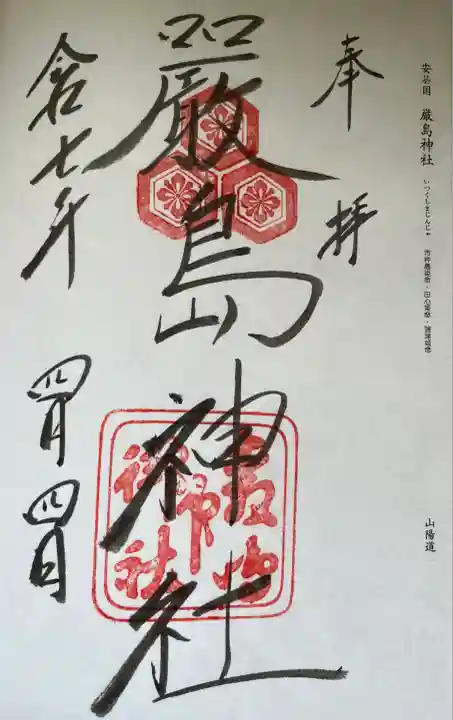 安芸国 厳島神社 いつくしまじんじゃ 市杵島姫命・田心姫命・湍津姫命
山陽道
奉拝
嚴島神社
令和七年 四月四日
嚴島神社